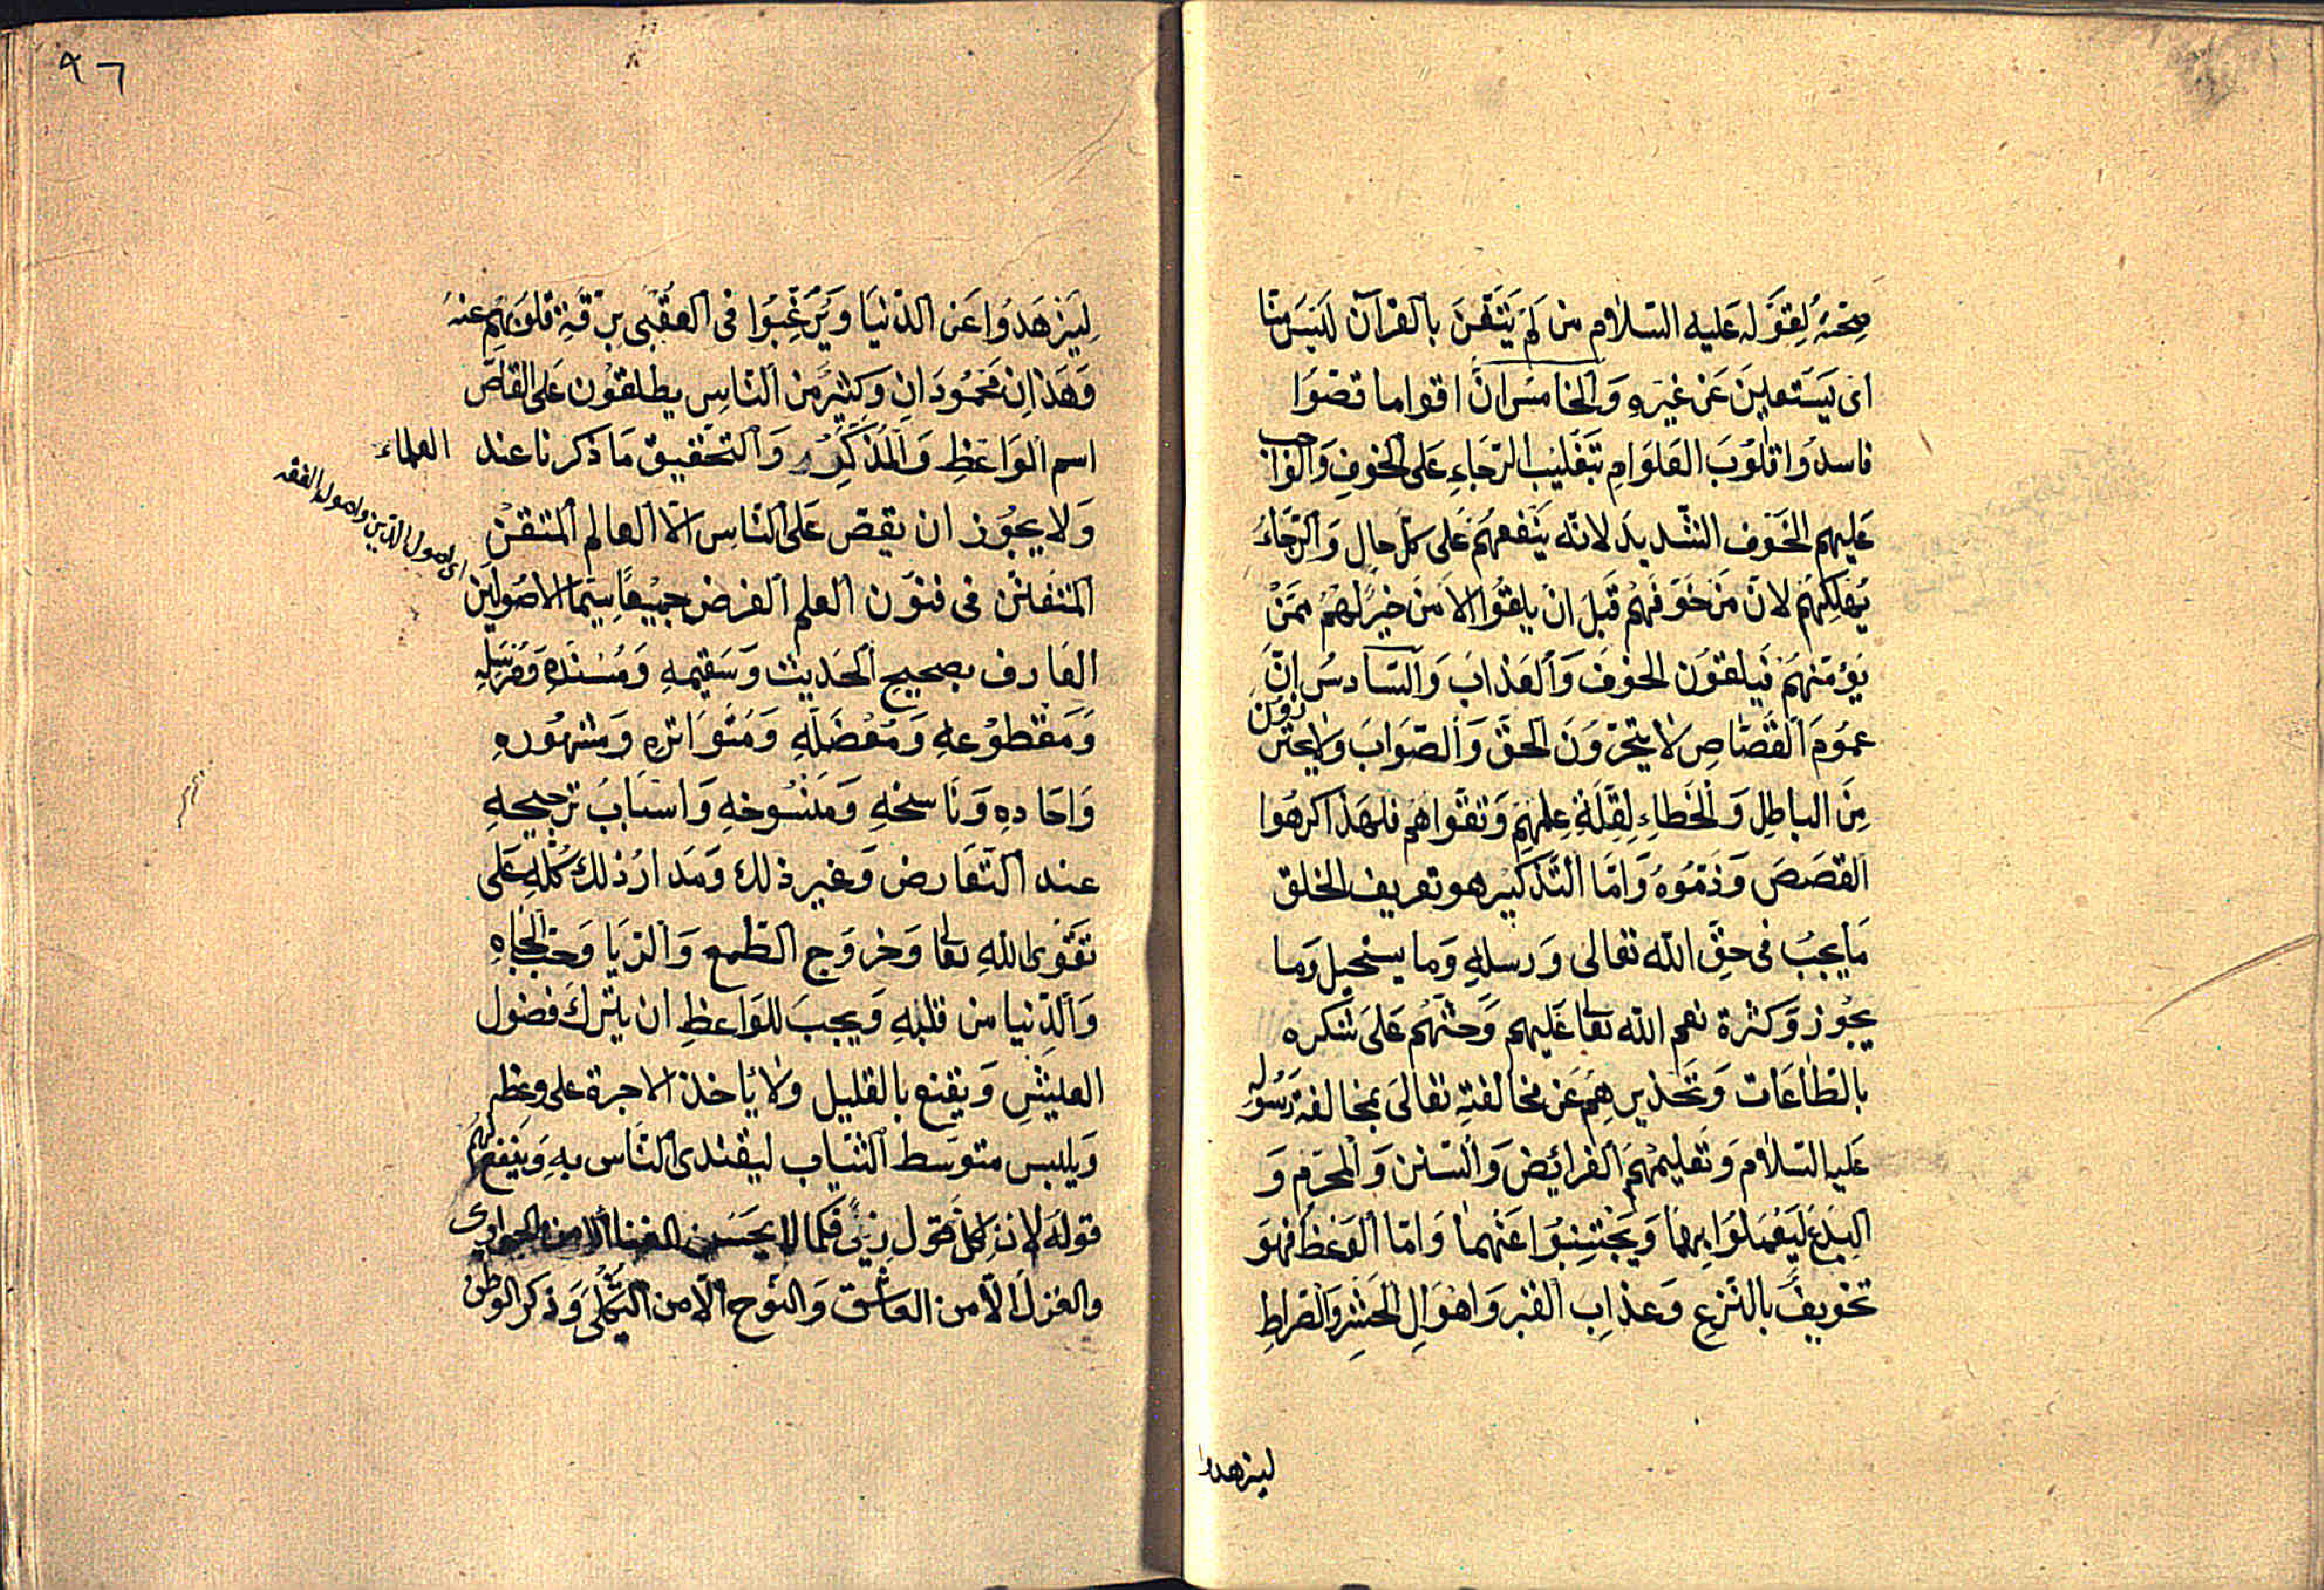 صحته لِقَوْله عَليه السّلام من لَمْ يَتَغَنَّ بالقرآن لَيْسَ منّا
اى يَسْتعلِينَ عَن غيره وَالخامسُ انَّ اقواما قصّوا
فاسدُوا قلوُبَ العَوَامِ بتَغليْب الرّجَاءِ عَلى الخوفِ وَالواجب
عَليهم الخَوْف الشّديد لانّه يَنْفعهُمْ عَلى كلّ حال وَالرّجَاءُ
يُهلِكُهُمْ لانّ مَنْ خَوَّفَهُمْ قَبلَ انْ يلقُوا الاَمنَ خيرٌ لهُمْ مِمَّنْ
يُؤمّنهُمْ فَيلقوُن الخوفَ وَالعَذابَ وَالسّادسُ انَّ
عمُومَ القصّاصِ لا يتحرّوْنَ الحقَّ وَالصّوَابَ وَلا يحترزون
مِنَ الباطِلِ وَالخطاءِ لِقلّةِ عِلمهِمْ وَتقوَاهم فلهَذا كرهُوا
القصَصَ وَذَمّوُهُ وَامّا التّذكيْر هو تعريف الخلق
مَا يجبُ فى حقّ اللّه تعَالى وَرسلِهِ وَما يستحيل وَما
يجُوز وَكثرة نعم اللّه تعا عَليهم وَحثّهُمْ عَلى شكره
بالطّاعَات وَتحذيرهِمْ عَن مخالفتهِ تعَالى بمخالفة رَسُوله
عَليه السّلام وَتعليمهُمَ الفرائِض وَالسّنن وَالمحرّم وَ
البِدَع لِيَعْمَلوُا بِهِمَا وَيَجتنِبُوا عَنهمَا وَامّا الوَعظ فهوَ
تخويفٌ بالنّزعِ وَعذابِ القبر وَاهوَالِ الحَشرِ وَالصّراطِ
ليزهدوا
٩٦
لِيَزهَدُوا عَن الدّنيَا وَيُرَغّبُوا فى العُقْبى بِرِقّةِ قلوبهِمْ عنهُ
وَهذانِ مَحْمُودَانِ وَكثيرٌ من النّاسِ يطلقوُن عَلى القاصّ
اسم الوَاعظِ وَالمُذَكِّر وَالتّحقيق مَا ذكرنا عند العلماء
وَلا يجوُز ان يقصّ عَلى النّاسِ الّا العالم المتقنْ
المتفنّن فى فنوُن العلم الفرض جميْعًا سيّما الاصُوليْن
اى اصول الدّين واصول الفقه
العَارف بصحيح الحَديث وَسقيمهِ وَمُسْنَدهِ وَمُرْسَلِهِ
وَمَقطوُعهِ وَمُعْضَلِهِ وَمتَوَاترهِ وَمشهُورهِ
وَاحَادهِ وَناسخهِ وَمَنْسُوخهِ وَاسبابَ ترجيحهِ
عند التّعَارض وَغير ذلك وَمَدارُ ذلك كُلّهِ عَلى
تقوَى اللّهِ تعا وَخروَج الطّمع وَالرّيَا وَحبّ الجاهِ
وَالدّنيا من قلبهِ وَيجبَ للوَاعظِ ان يتركَ فضول
العيْشِ وَيقنع بالقليل وَلا يأخذ الاجرة على وعظه
وَيلبس متوسّط الثّيابِ ليقتدى النّاس بهِ وَينفعهُمْ
قولهَ لانّ كلّ قول زىّ فكما لا يحسَن الغنا الا من الجوارى
والغزل الّا من العاشق وَالنّوح الّا من الثّكلى وَذكر الوطن